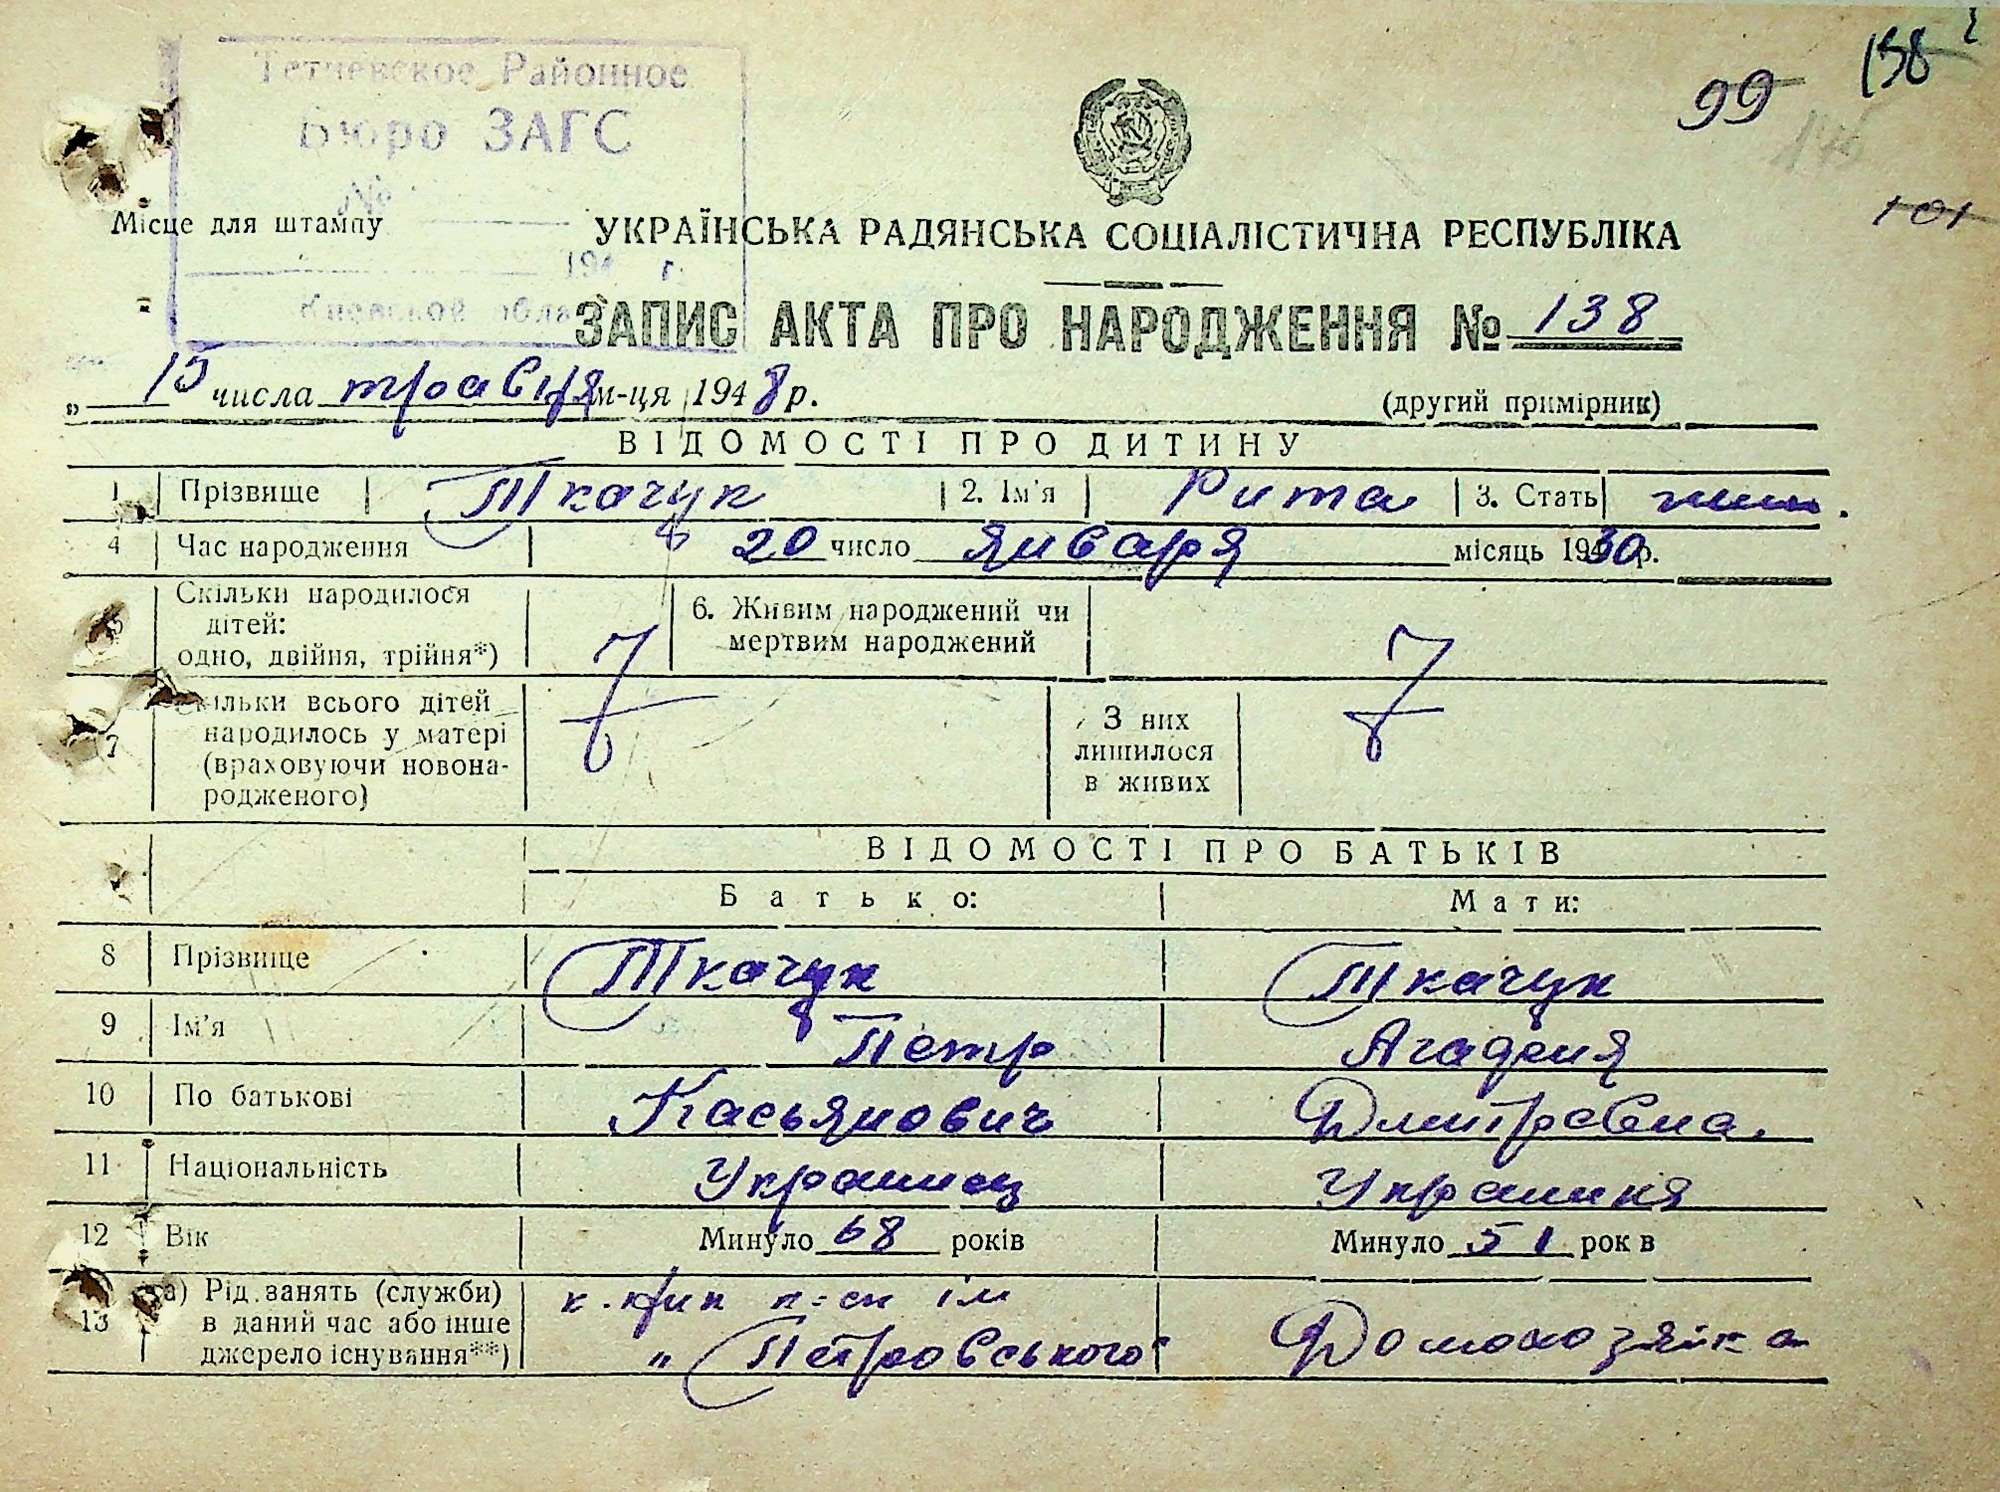 Тетиевское Районное
Бюро ЗАГС
№
194 г.
Киевской обла
99
158
146
101
Місце для штампу
УКРАЇНСЬКА РАДЯНСЬКА СОЦІАЛІСТИЧНА РЕСПУБЛІКА
ЗАПИС АКТА ПРО НАРОДЖЕННЯ № 138
„ 15 числа травня м-ця 1948 р.
(другий примірник)
ВІДОМОСТІ ПРО ДИТИНУ
1 Прізвище Ткачук 2. Ім'я Рита 3. Стать жин.
4 Час народження 20 число января місяць 1930 р.
5 Скільки народилося дітей: одно, двійня, трійня*)
6. Живим народжений чи мертвим народжений
7 Скільки всього дітей народилось у матері (враховуючи новонародженого) 7
З них лишилося в живих 7
ВІДОМОСТІ ПРО БАТЬКІВ
Батько: Мати:
8 Прізвище Ткачук Ткачук
9 Ім'я Петр Агафия
10 По батькові Касьянович Дмитревна.
11 Національність Украинец Украинка
12 Вік Минуло 68 років Минуло 51 рок в
13 а) Рід занять (службы) в даний час або інше джерело існування**)
ім
„Петровського" Домохозяйка